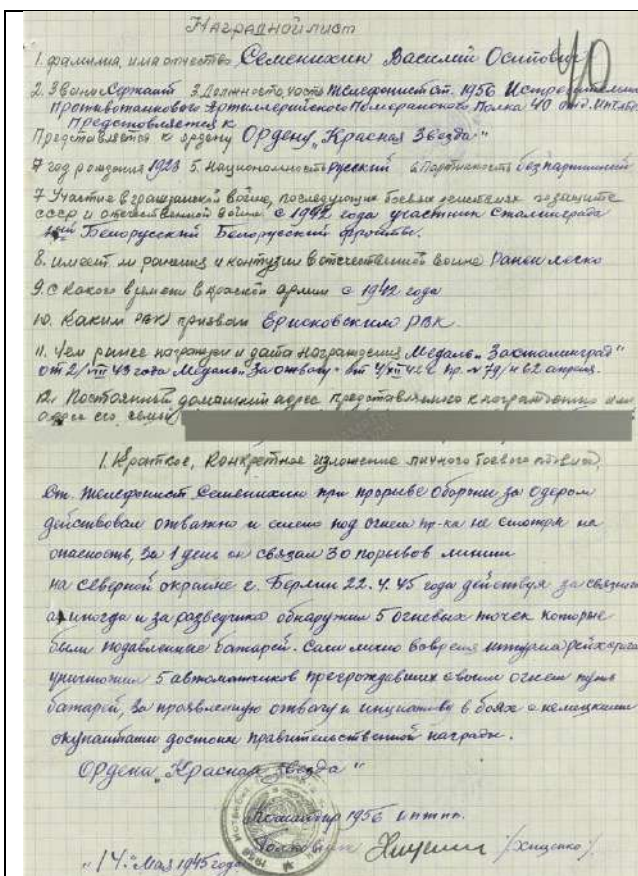 Наградной лист
40
1. фамилия, имя отчество Семенихин Василий Осипович
2. Звание Сержант 3. Должность, часть телефонист от. 1956 Истребительно
Противотанкового Артиллерийского Померанского Полка 40 отд.
Представляется к
Представляется к ордену Ордену „Красная Звезда"
год рождения 1923 5. Национальность русский 6 Партийность безпартийный
7 Участие в гражданской войне, последующих боевых действиях по защите
ссср и отечественной войне с 1942 года участник Сталинграда
Белорусский Белорусский фронты.
8. имеет ли ранения и контузии в отечественной войне Ранен легко
9. с какого времени в красной армии с 1942 года
10. Каким РВК призван РВК.
11. Чем ранее награжден и дата награждения Медаль „За сталинград"
от 2/VIII 43 года Медаль „За отвагу" от 4/XII 42 г. пр. № 79/н
12. Постоянный домашний адрес представляемого к награждению или
адрес его семьи
1. Краткое, Конкретное изложение личного боевого подвига
Ст. телефонист Семенихин при прорыве обороны за одером
действовал отважно и смело под огнем пр-ка не смотря на
опасность, За 1 день он связал 30 порывов линии
на северной окраине г. Берлин 22.4.45 года действуя за связного
а иногда и за разведчика обнаружил 5 огневых точек которые
были подавленные батарей. Сам лично вовремя штурма рейхстага
уничтожил 5 автоматчиков преграждавших своим огнем путь
батарей, За проявленную отвагу и инициативу в боях с немецкими
окупантами достоин правительственной награды.
Ордена „Красная Звезда"
Командир 1956 иптап.
Полковник /Хищенко/.
„14" Мая 1945 года